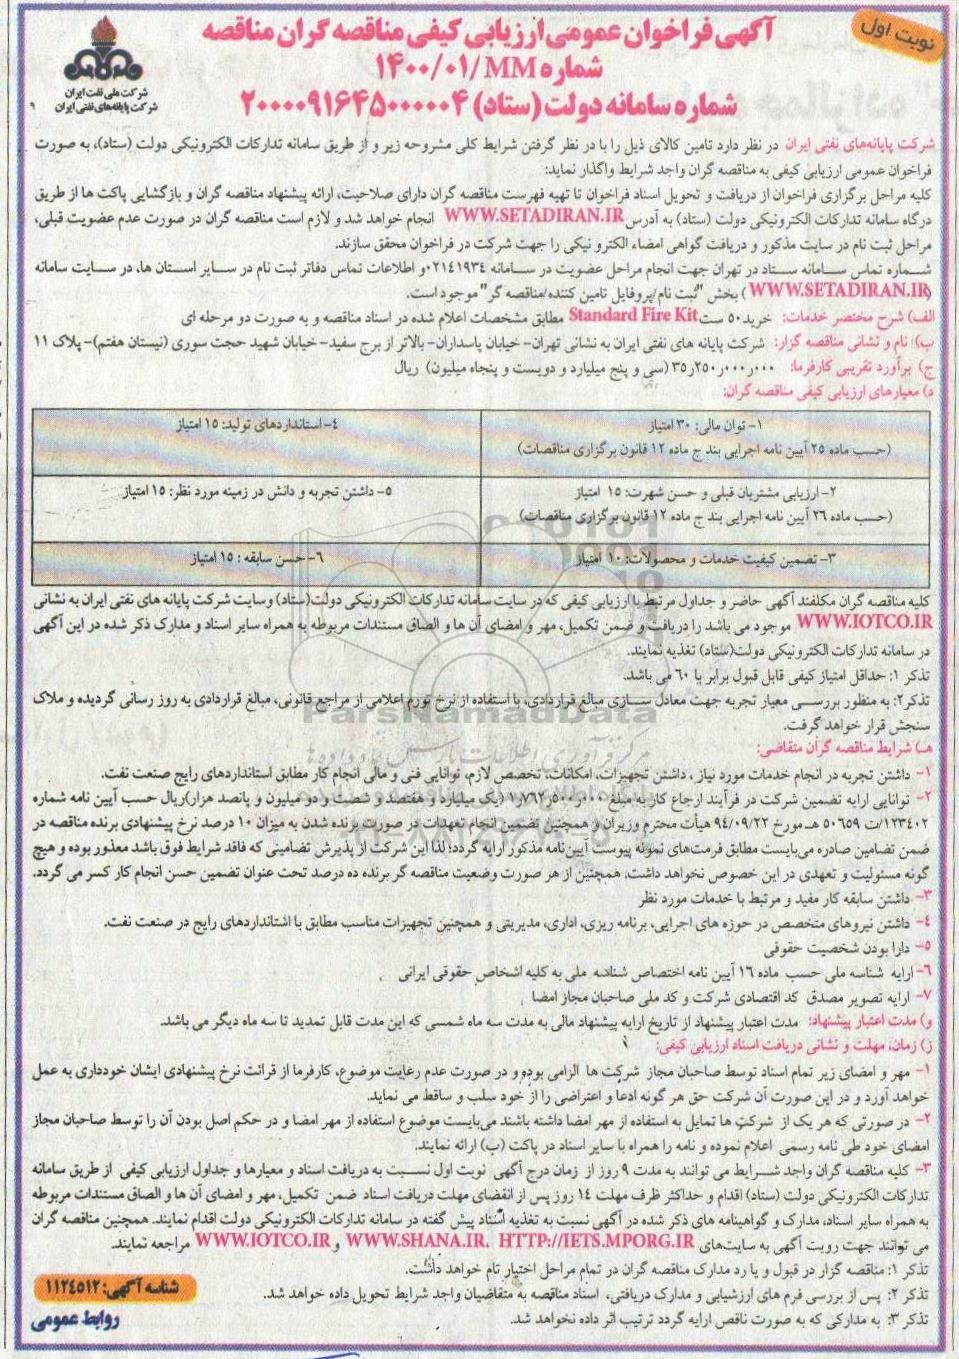 نوبت اول
آگهی فراخوان عمومی ارزیابی کیفی مناقصه گران مناقصه
شماره MM/۱۴۰۰/۰۱
شماره سامانه دولت (ستاد) ۲۰۰۰۰۹۱۶۴۵۰۰۰۰۰۴
شرکت ملی نفت ایران
شرکت پایانه‌های نفتی ایران
شرکت پایانه‌های نفتی ایران در نظر دارد تامین کالای ذیل را با در نظر گرفتن شرایط کلی مشروحه زیر و از طریق سامانه تدارکات الکترونیکی دولت (ستاد)، به صورت
فراخوان عمومی ارزیابی کیفی به مناقصه گران واجد شرایط واگذار نماید:
کلیه مراحل برگزاری فراخوان از دریافت و تحویل اسناد فراخوان تا تهیه فهرست مناقصه گران دارای صلاحیت، ارائه پیشنهاد مناقصه گران و بازگشایی پاکت ها از طریق
درگاه سامانه تدارکات الکترونیکی دولت (ستاد) به آدرس WWW.SETADIRAN.IR انجام خواهد شد و لازم است مناقصه گران در صورت عدم عضویت قبلی،
مراحل ثبت نام در سایت مذکور و دریافت گواهی امضاء الکترونیکی را جهت شرکت در فراخوان محقق سازند.
شماره تماس سامانه ستاد در تهران جهت انجام مراحل عضویت در سامانه ۰۲۱۴۱۹۳۴ و اطلاعات تماس دفاتر ثبت نام در سایر استان ها، در سایت سامانه
(WWW.SETADIRAN.IR) بخش "ثبت نام/پروفایل تامین کننده/مناقصه گر" موجود است.
الف) شرح مختصر خدمات: خرید ۵۰ ست Standard Fire Kit مطابق مشخصات اعلام شده در اسناد مناقصه و به صورت دو مرحله ای
ب) نام و نشانی مناقصه گزار: شرکت پایانه های نفتی ایران به نشانی تهران- خیابان پاسداران- بالاتر از برج سفید- خیابان شهید حجت سوری (نیستان هفتم)- پلاک ۱۱
ج) برآورد تقریبی کارفرما: ۳۵٫۲۵۰٫۰۰۰٫۰۰۰ (سی و پنج میلیارد و دویست و پنجاه میلیون) ریال
د) معیارهای ارزیابی کیفی مناقصه گران:
۱- توان مالی: ۳۰ امتیاز
(حسب ماده ۲۵ آیین نامه اجرایی بند ج ماده ۱۲ قانون برگزاری مناقصات)
۴- استانداردهای تولید: ۱۵ امتیاز
۲- ارزیابی مشتریان قبلی و حسن شهرت: ۱۵ امتیاز
(حسب ماده ۲۶ آیین نامه اجرایی بند ج ماده ۱۲ قانون برگزاری مناقصات)
۵- داشتن تجربه و دانش در زمینه مورد نظر: ۱۵ امتیاز
۳- تضمین کیفیت خدمات و محصولات: ۱۰ امتیاز
۶- حسن سابقه : ۱۵ امتیاز
کلیه مناقصه گران مکلفند آگهی حاضر و جداول مرتبط با ارزیابی کیفی که در سایت سامانه تدارکات الکترونیکی دولت(ستاد) وسایت شرکت پایانه های نفتی ایران به نشانی
WWW.IOTCO.IR موجود می باشد را دریافت و ضمن تکمیل، مهر و امضای آن ها و الصاق مستندات مربوطه به همراه سایر اسناد و مدارک ذکر شده در این آگهی
در سامانه تدارکات الکترونیکی دولت(ستاد) تغذیه نمایند.
تذکر ۱: حداقل امتیاز کیفی قابل قبول برابر با ۶۰ می باشد.
تذکر۲: به منظور بررسی معیار تجربه جهت معادل سازی مبالغ قراردادی، با استفاده از نرخ تورم اعلامی از مراجع قانونی، مبالغ قراردادی به روز رسانی گردیده و ملاک
سنجش قرار خواهد گرفت.
ParsNamadData
هـ) شرایط مناقصه گران متقاضی:
۱- داشتن تجربه در انجام خدمات مورد نیاز ، داشتن تجهیزات، امکانات، تخصص لازم، توانایی فنی و مالی انجام کار مطابق استانداردهای رایج صنعت نفت.
۲- توانایی ارایه تضمین شرکت در فرآیند ارجاع کار به مبلغ ۱٫۷۶۲٫۵۰۰٫۰۰۰ (یک میلیارد و هفتصد و شصت و دو میلیون و پانصد هزار)ریال حسب آیین نامه شماره
۱۲۳۴۰۲/ت ۵۰۶۵۹ هـ مورخ ۹۴/۰۹/۲۲ هیأت محترم وزیران و همچنین تضمین انجام تعهدات در صورت برنده شدن به میزان ۱۰ درصد نرخ پیشنهادی برنده مناقصه در
ضمن تضامین صادره می‌بایست مطابق فرمت‌های نمونه پیوست آیین‌نامه مذکور ارایه گردد؛ لذا این شرکت از پذیرش تضامینی که فاقد شرایط فوق باشد معذور بوده و هیچ
گونه مسئولیت و تعهدی در این خصوص نخواهد داشت. همچنین از هر صورت وضعیت مناقصه گر برنده ده درصد تحت عنوان تضمین حسن انجام کار کسر می گردد.
۳- داشتن سابقه کار مفید و مرتبط با خدمات مورد نظر
۴- داشتن نیروهای متخصص در حوزه های اجرایی، برنامه ریزی، اداری، مدیریتی و همچنین تجهیزات مناسب مطابق با استانداردهای رایج در صنعت نفت.
۵- دارا بودن شخصیت حقوقی
۶- ارایه شناسه ملی حسب ماده ۱۶ آیین نامه اختصاص شناسه ملی به کلیه اشخاص حقوقی ایرانی
۷- ارایه تصویر مصدق کد اقتصادی شرکت و کد ملی صاحبان مجاز امضا
و) مدت اعتبار پیشنهاد: مدت اعتبار پیشنهاد از تاریخ ارایه پیشنهاد مالی به مدت سه ماه شمسی که این مدت قابل تمدید تا سه ماه دیگر می باشد.
ز) زمان، مهلت و نشانی دریافت اسناد ارزیابی کیفی:
۱- مهر و امضای زیر تمام اسناد توسط صاحبان مجاز شرکت ها الزامی بوده و در صورت عدم رعایت موضوع، کارفرما از قرائت نرخ پیشنهادی ایشان خودداری به عمل
خواهد آورد و در این صورت آن شرکت حق هر گونه ادعا و اعتراضی را از خود سلب و ساقط می نماید.
۲- در صورتی که هر یک از شرکت ها تمایل به استفاده از مهر امضا داشته باشند می‌بایست موضوع استفاده از مهر امضا و در حکم اصل بودن آن را توسط صاحبان مجاز
امضای خود طی نامه رسمی اعلام نموده و نامه را همراه با سایر اسناد در پاکت (ب) ارائه نمایند.
۳- کلیه مناقصه گران واجد شرایط می توانند به مدت ۹ روز از زمان درج آگهی نوبت اول نسبت به دریافت اسناد و معیارها و جداول ارزیابی کیفی از طریق سامانه
تدارکات الکترونیکی دولت (ستاد) اقدام و حداکثر ظرف مهلت ۱۴ روز پس از انقضای مهلت دریافت اسناد ضمن تکمیل، مهر و امضای آن ها و الصاق مستندات مربوطه
به همراه سایر اسناد، مدارک و گواهینامه های ذکر شده در آگهی نسبت به تغذیه اسناد پیش گفته در سامانه تدارکات الکترونیکی دولت اقدام نمایند. همچنین مناقصه گران
می توانند جهت رویت آگهی به سایت‌های WWW.SHANA.IR، HTTP://IETS.MPORG.IR و WWW.IOTCO.IR مراجعه نمایند.
تذکر ۱: مناقصه گزار در قبول و یا رد مدارک مناقصه گران در تمام مراحل اختیار تام خواهد داشت.
تذکر ۲: پس از بررسی فرم های ارزشیابی و مدارک دریافتی، اسناد مناقصه به متقاضیان واجد شرایط تحویل داده خواهد شد.
تذکر ۳: به مدارکی که به صورت ناقص ارایه گردد ترتیب اثر داده نخواهد شد.
شناسه آگهی: ۱۱۲۴۵۱۲
روابط عمومی